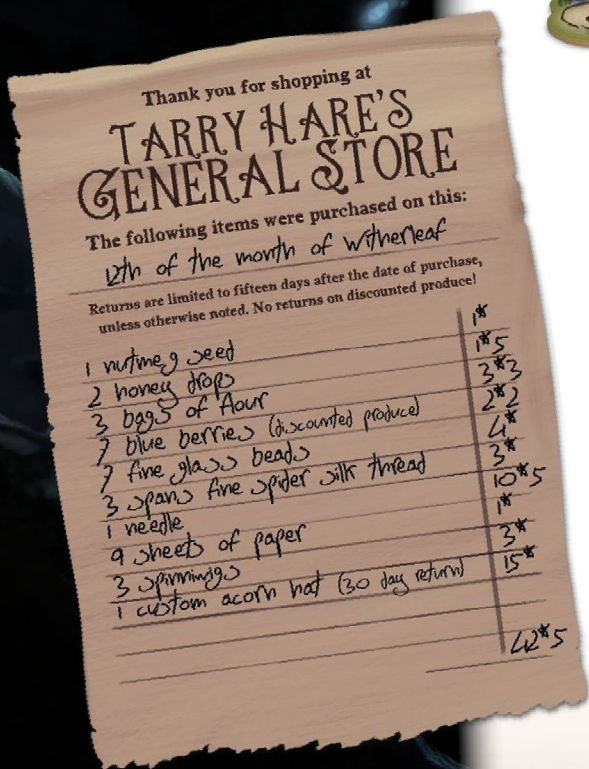 Thank you for shopping at
TARRY HARE'S
GENERAL STORE
The following items were purchased on this:
12th of the month of Witherleaf
Returns are limited to fifteen days after the date of purchase,
unless otherwise noted. No returns on discounted produce!
1 nutmeg seed 1*
2 honey drops 1*5
3 bags of flour 3*3
7 blue berries (discounted produce) 2*2
7 fine glass beads 4*
3 spans fine spider silk thread 3*
1 needle 10*5
9 sheets of paper 1*
3 spinnings 3*
1 custom acorn hat (30 day return) 15*
42*5